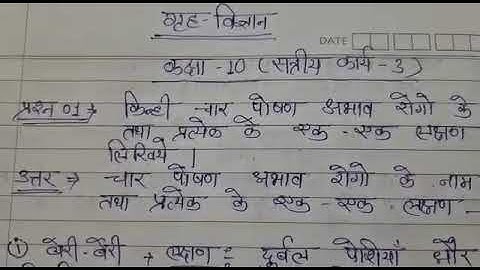 गृह-विज्ञान
DATE
कक्षा -10 (सत्रीय कार्य - 3)
प्रश्न 01 → किन्ही चार पोषण अभाव रोगो के
तथा प्रत्येक के एक-एक लक्षण
लिखिये ।
उत्तर → चार पोषण अभाव रोगो के नाम
तथा प्रत्येक के एक-एक लक्षण -
(i) बेरी-बेरी → लक्षण = दुर्बल पेशियाँ और